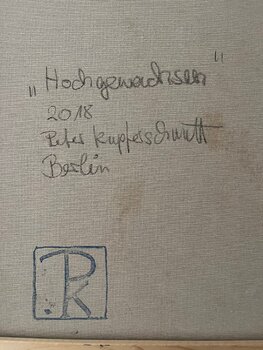 „Hochgewachsen"
2018
Peter Kupferschmitt
Berlin
PK